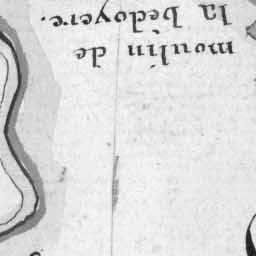 moulin de
la bédoyere.